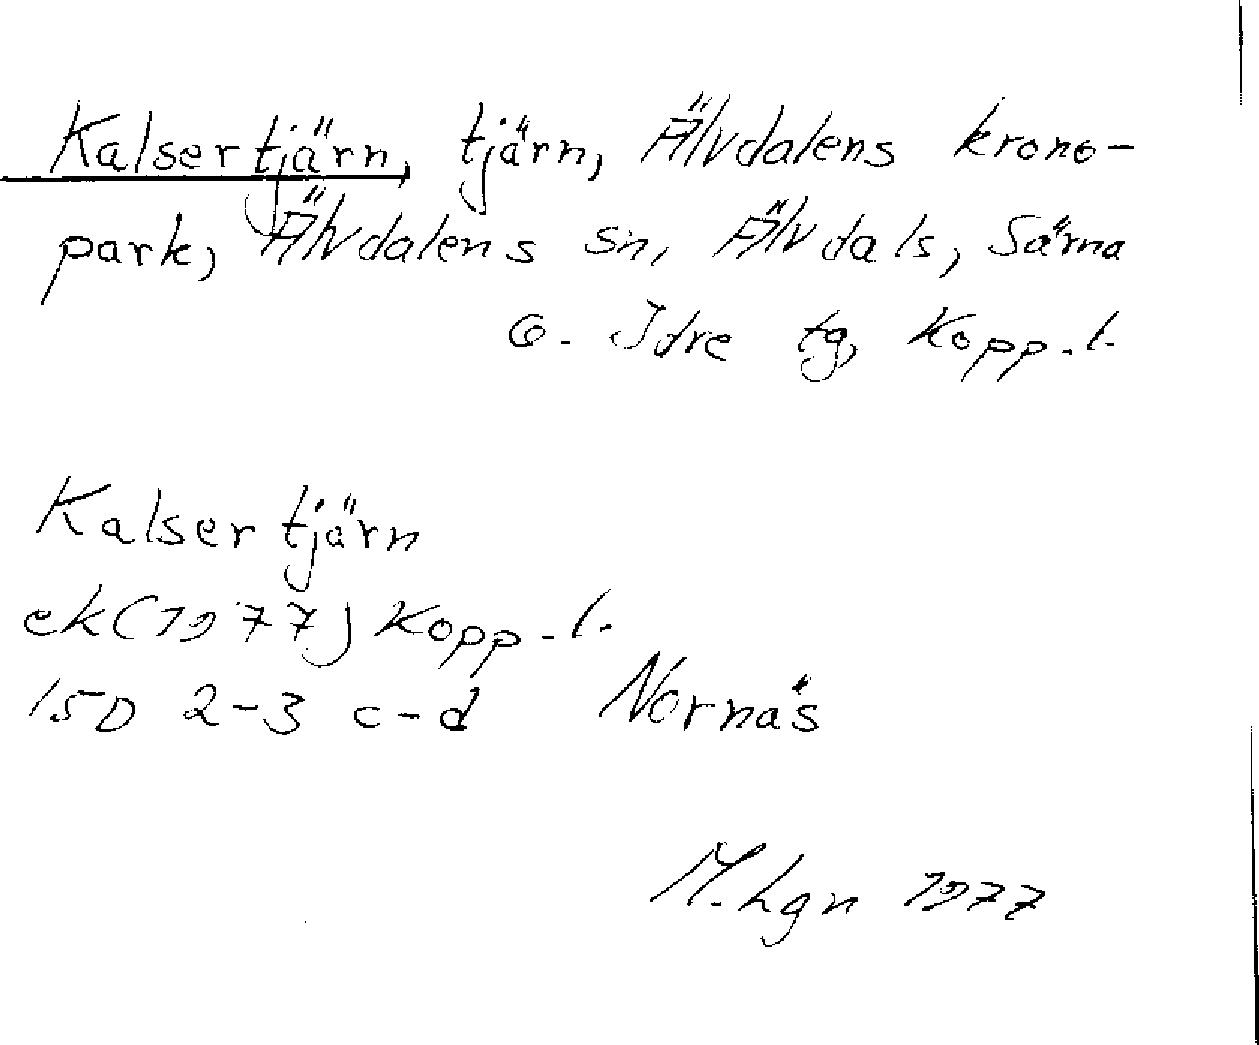 Kalsertjärn, tjärn, Älvdalens krono-
park, Älvdalens sn, Älvdals, Särna
o. Idre tg, Kopp.l.
Kalsertjärn
ek(1977) Kopp-l.
15D 2-3 c-d Nornäs
M.Lgn 1977